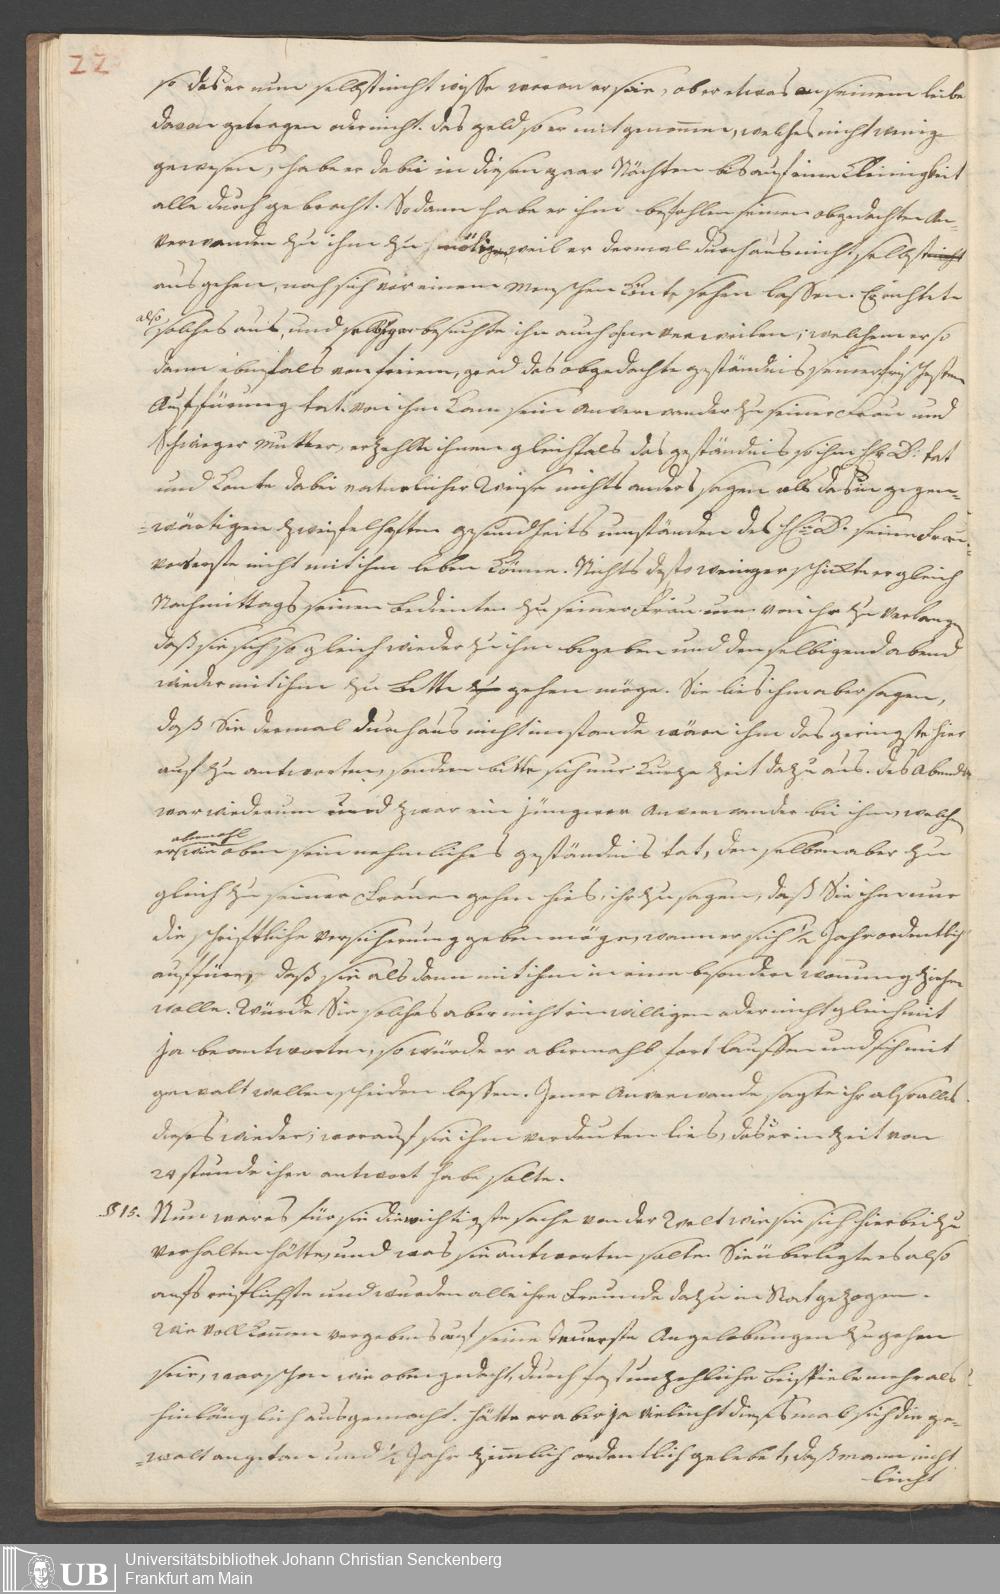 22
so das er nun selbst nicht wisse woran er seie, ob er etwas an seinem leibe
davon getragen oder nicht. das geld so er mit genommen, welches nicht wenig
gewesen, habe er dabei in diesen paar Nächten bis auf eine Kleinigkeit
alle durch gebracht. Sodann habe er ihm befohlen seinen obgedachten An-
verwanden zu ihm zu weil er dermal durchaus nicht selbst
aus gehen, noch sich vor einem Menschen könte sehen lassen. Er richtete
also solches aus, und besuchte ihn auch ohne verweilen; welchem er so
dann ebenfals von freiem, grad das obgedachte geständnis seiner
Auffürung tat. von ihm kam sein anverwander zu seiner Frau und
Schwieger Mutter, erzehlte ihnen gleichfals das geständnis so ihm Hr D. tat
und konte dabei natürlicher Weise nichts anders sagen als das in gegen-
wärtigen zweifelhaften gesundheits umständen des Hrn D. seine Frau
vorerste nicht mit ihm leben könne. Nichts desto weniger schickte er gleich
Nachmittags seinen bedienten zu seiner Frau um von ihr zu verlangen
daß sie sich so gleich wieder zu ihm begeben und den selbigen abend
wieder mit ihm zu bette gehen möge. Sie lies ihm aber sagen,
daß Sie dermal durchaus nicht im stande wäre ihm das geringste hier
auf zu antworten, sondern bitte sich nur kurze zeit dazu aus. des Abends
war wiederum und zwar ein jüngerer anverwander bei ihm, welchem
er abermahl wie oben sein nehmliches geständnis tat, den selben aber zu
gleich zu seiner Frauen gehen hies, ihr zu sagen, daß Sie ihm nur
die schriftliche versicherung geben möge, wann er sich 1/2 Jahr ordentlich
auffüre, daß sie als dann mit ihm in eine besondere wonung ziehen
wolle. Würde Sie solches aber nicht einwilligen oder nicht gleich mit
Ja beantworten, so würde er abermahls fort lauffen und sich mit
gewalt wollen scheiden lassen. Jener Anverwande sagte ihr also alles
dieses wieder; worauf sie ihm verdeuten lies, das er in zeit von
24 stunde ihre antwort habe solte.
§ 15. Nun war es für sie die wichtigste sache von der Welt wie sie sich hierbei zu
verhalten hätte, und was sie antworten solte. Sie überlegte es also
aufs reiflichste und wurden alle ihre Freunde dazu in Rat gezogen.
Wie vollkommen vergebens auf seine teuerste Angelobungen zu gehen
seie, war schon wie oben gedacht, durch fast unzehliche beispiele mehr als
hinlänglich ausgemacht. Hätte er aber ja vieleicht dieses mal sich die ge-
walt angetan und 1/2 Jahr zimmlich ordentlich gelebet, daß mann nicht
leicht
UB Universitätsbibliothek Johann Christian Senckenberg
Frankfurt am Main